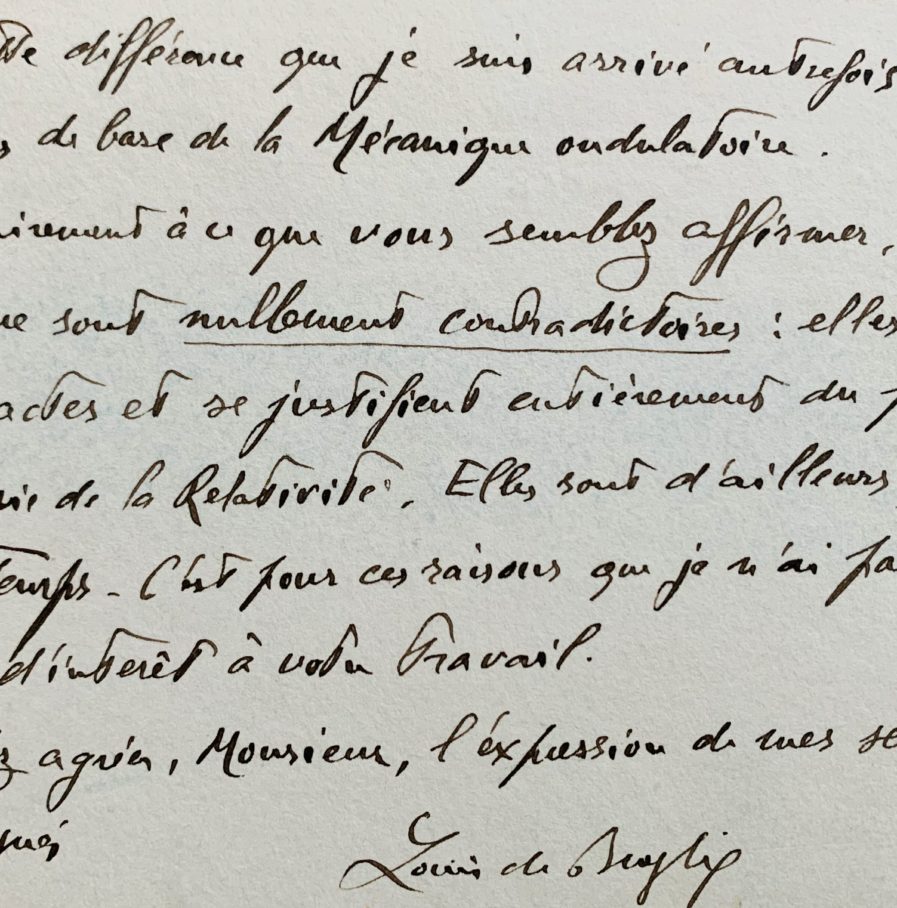 tte différence que je suis arrivé autrefois
s de base de la Mécanique ondulatoire.
irement à ce que vous semblez affirmer,
ne sont nullement contradictoires : elles
actes et se justifient entièrement du p
rie de la Relativité. Elles sont d'ailleurs
temps - C'est pour ces raisons que je n'ai pa
d'intérêt à votre travail.
ez agréer, Monsieur, l'éxpression de mes se
gués
Louis de Broglie